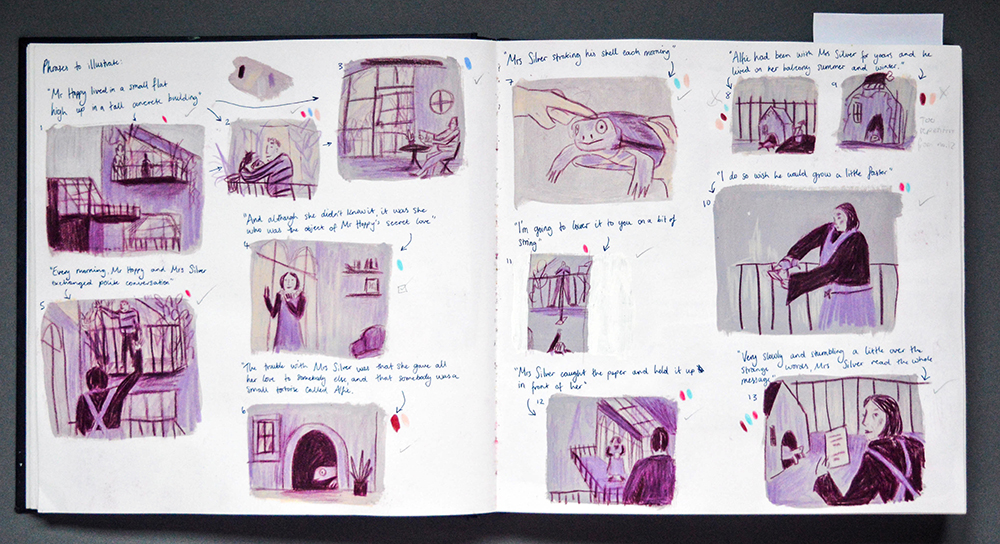 Phrases to illustrate:
"Mr Hoppy lived in a small flat
high up in a tall concrete building"
1
2
3
"And although she didn't know it, it was she
who was the object of Mr Hoppy's secret love"
4
"Every morning, Mr Hoppy and Mrs Silver
exchanged polite conversation"
5
"The trouble with Mrs Silver was that she gave all
her love to somebody else, and that somebody was a
small tortoise called Alfie.
6
"Mrs Silver stroking his shell each morning"
7
"Alfie had been with Mrs Silver for years and he
lived on her balcony summer and winter."
8
9
TOO
"I do so wish he would grow a little faster"
10
"I'm going to lower it to you on a bit of
string"
11
"Mrs Silver caught the paper and held it up
in front of her"
12
"Very slowly and stumbling a little over the
strange words, Mrs Silver read the whole
message"
13